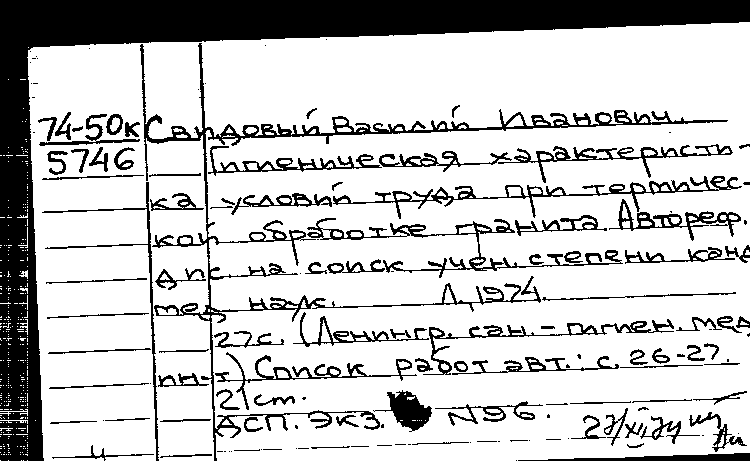 74-50к Свидовый, Василий Иванович.
5746 Гигиеническая характеристи-
ка условий труда при термичес-
кой обработке гранита. Автореф.
дис. на соиск. учен. степени канд
мед наук. Л., 1974.
27с. (Ленингр. сан.-гигиен. мед
ин-т). Список работ авт.: с. 26-27.
21см.
ДСП. экз. N96.
27/XII74